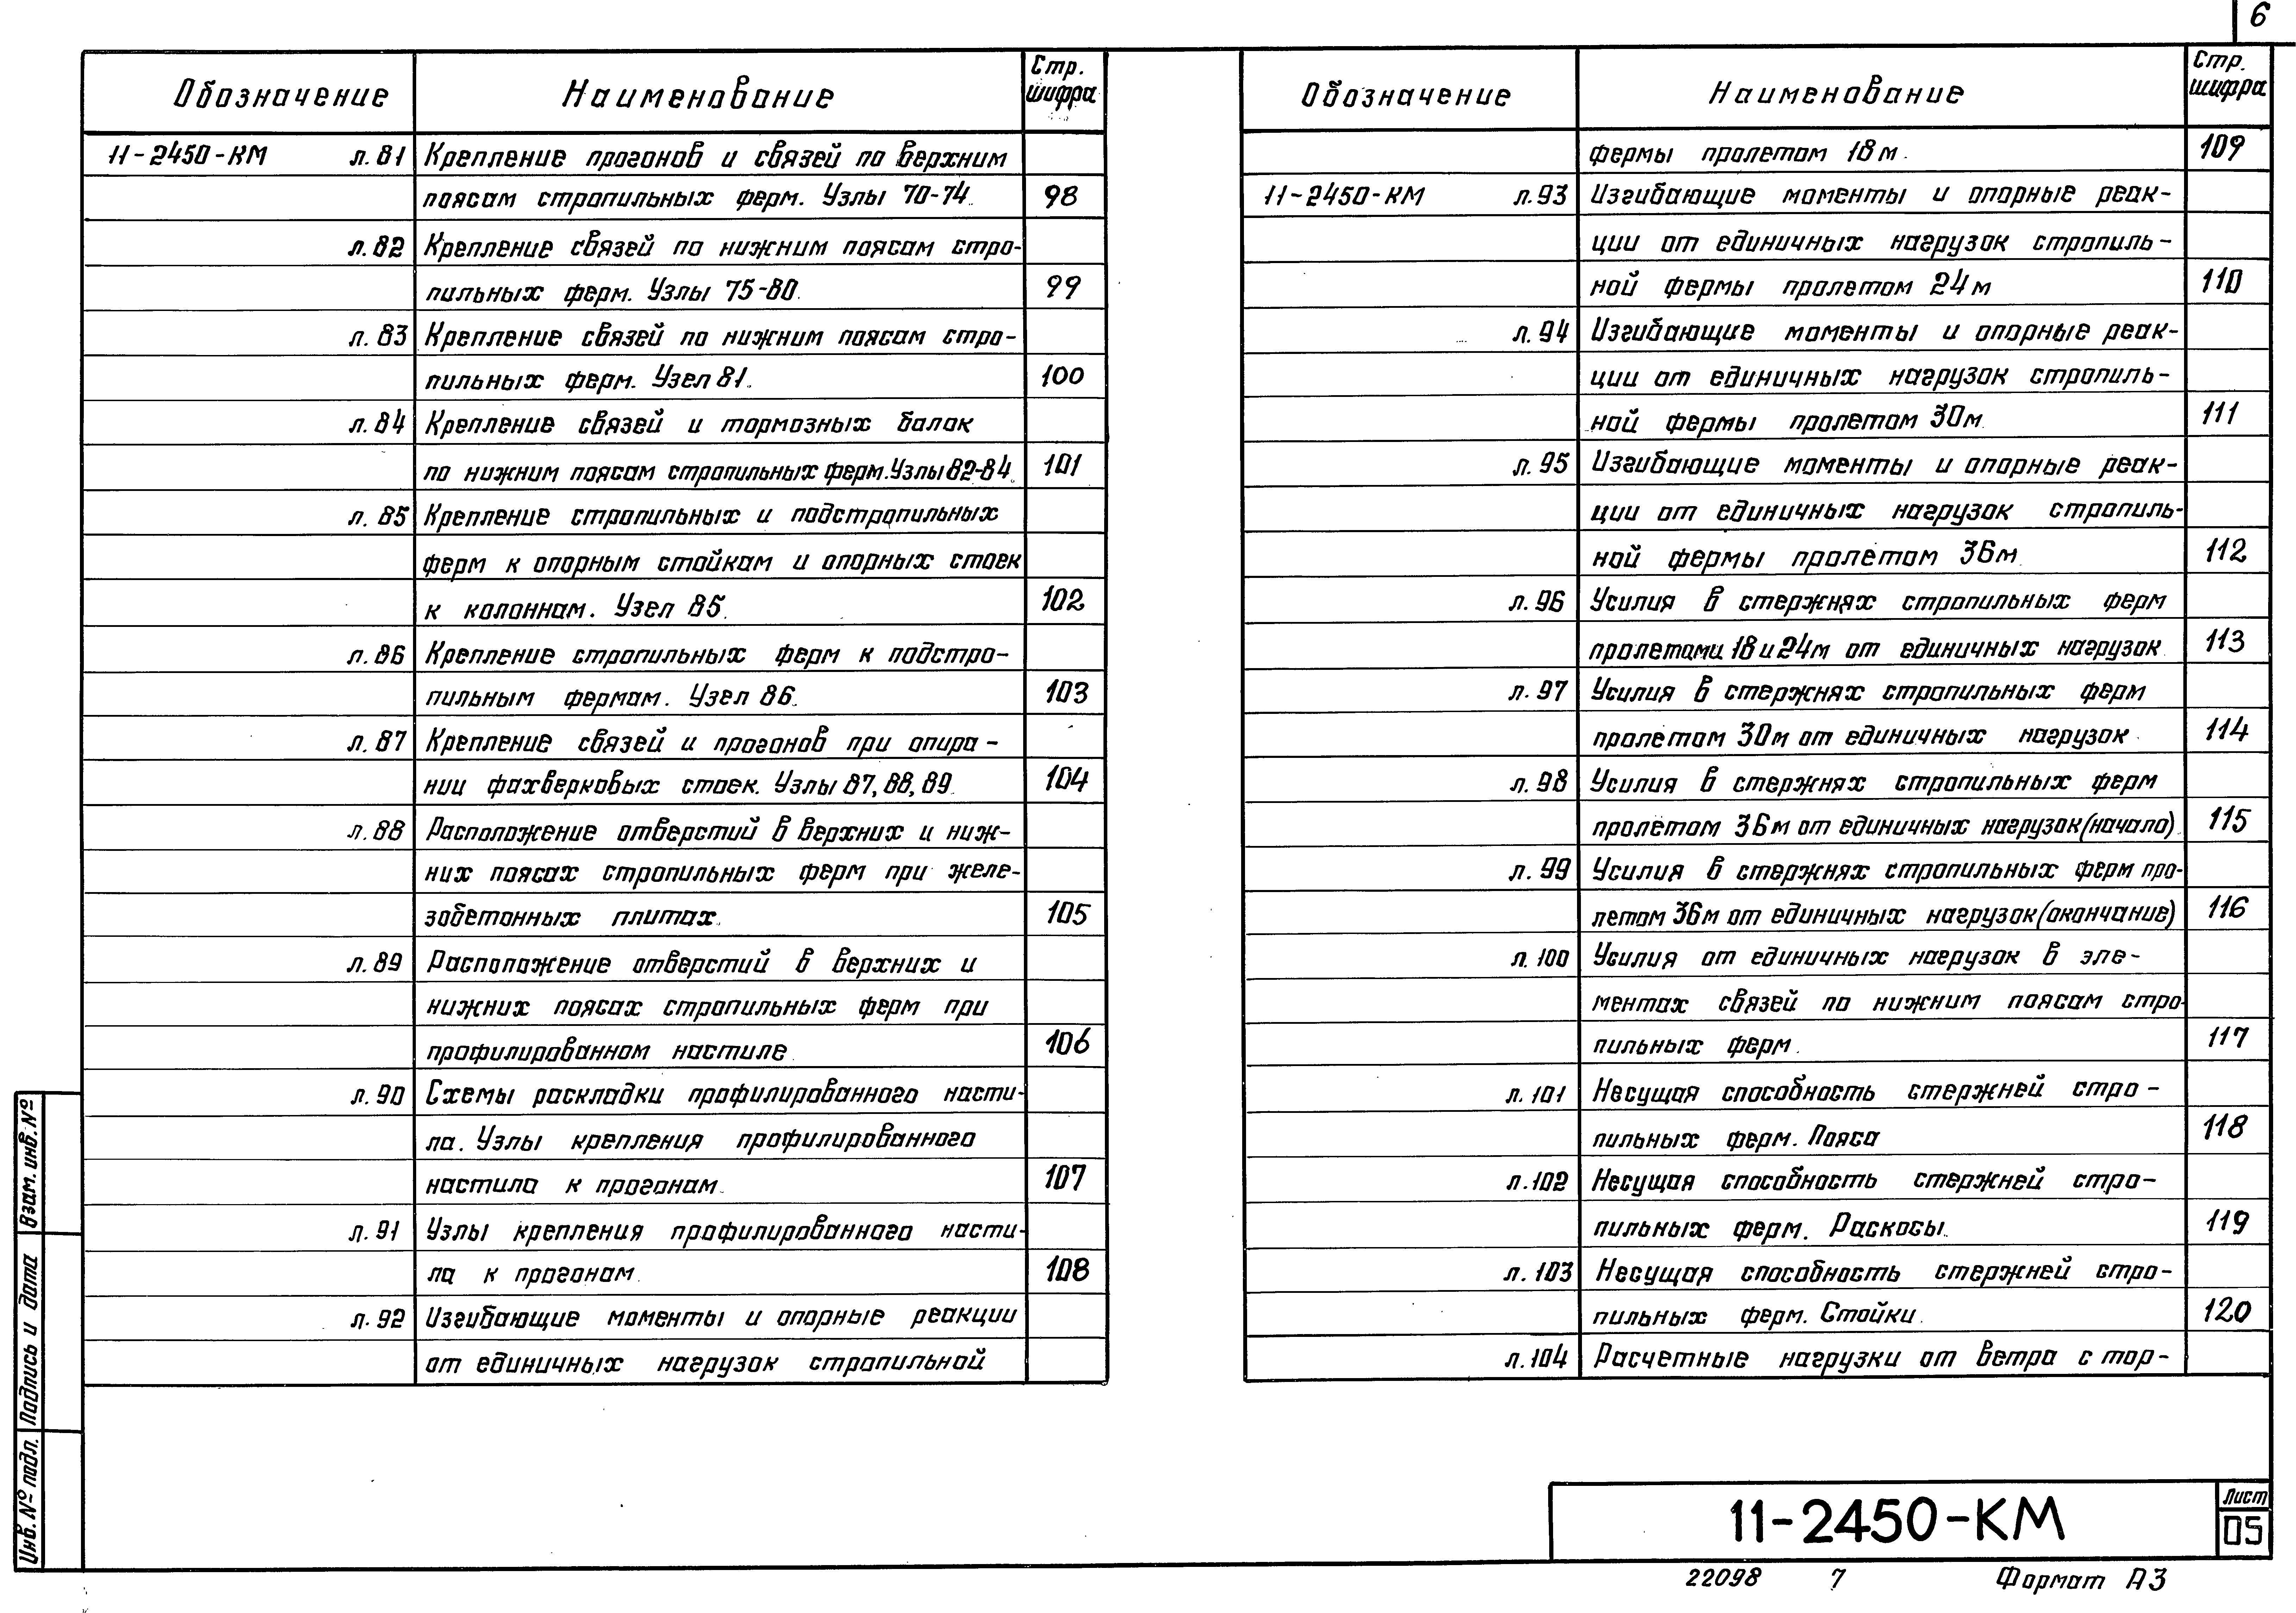 6
Обозначение Наименование Стр. шифра
11-2450-КМ л.81 Крепление прогонов и связей по верхним
поясам стропильных ферм. Узлы 70-74 98
л.82 Крепление связей по нижним поясам стро-
пильных ферм. Узлы 75-80. 99
л.83 Крепление связей по нижним поясам стро-
пильных ферм. Узел 81. 100
л.84 Крепление связей и тормозных балок
по нижним поясам стропильных ферм. Узлы 82-84 101
л.85 Крепление стропильных и подстропильных
ферм к опорным стойкам и опорных стоек
к колоннам. Узел 85. 102
л.86 Крепление стропильных ферм к подстро-
пильным фермам. Узел 86. 103
л.87 Крепление связей и прогонов при опира-
нии фахверковых стоек. Узлы 87, 88, 89. 104
л.88 Расположение отверстий в верхних и ниж-
них поясах стропильных ферм при желе-
зобетонных плитах. 105
л.89 Расположение отверстий в верхних и
нижних поясах стропильных ферм при
профилированном настиле. 106
л.90 Схемы раскладки профилированного насти-
ла. Узлы крепления профилированного
настила к прогонам. 107
л.91 Узлы крепления профилированного насти-
ла к прогонам. 108
л.92 Изгибающие моменты и опорные реакции
от единичных нагрузок стропильной
Обозначение Наименование Стр. шифра
фермы пролетом 18м. 109
11-2450-КМ л.93 Изгибающие моменты и опорные реак-
ции от единичных нагрузок стропиль-
ной фермы пролетом 24м 110
л.94 Изгибающие моменты и опорные реак-
ции от единичных нагрузок стропиль-
ной фермы пролетом 30м 111
л.95 Изгибающие моменты и опорные реак-
ции от единичных нагрузок стропиль-
ной фермы пролетом 36м 112
л.96 Усилия в стержнях стропильных ферм
пролетами 18 и 24м от единичных нагрузок 113
л.97 Усилия в стержнях стропильных ферм
пролетом 30м от единичных нагрузок 114
л.98 Усилия в стержнях стропильных ферм
пролетом 36м от единичных нагрузок (начало) 115
л.99 Усилия в стержнях стропильных ферм про-
летом 36м от единичных нагрузок (окончание) 116
л.100 Усилия от единичных нагрузок в эле-
ментах связей по нижним поясам стро-
пильных ферм. 117
л.101 Несущая способность стержней стро-
пильных ферм. Пояса 118
л.102 Несущая способность стержней стро-
пильных ферм. Раскосы. 119
л.103 Несущая способность стержней стро-
пильных ферм. Стойки. 120
л.104 Расчетные нагрузки от ветра с тор-
Взам. инв. №
Подпись и дата
Инв. № подл.
11-2450-КМ
Лист
05
22098 7 Формат А3